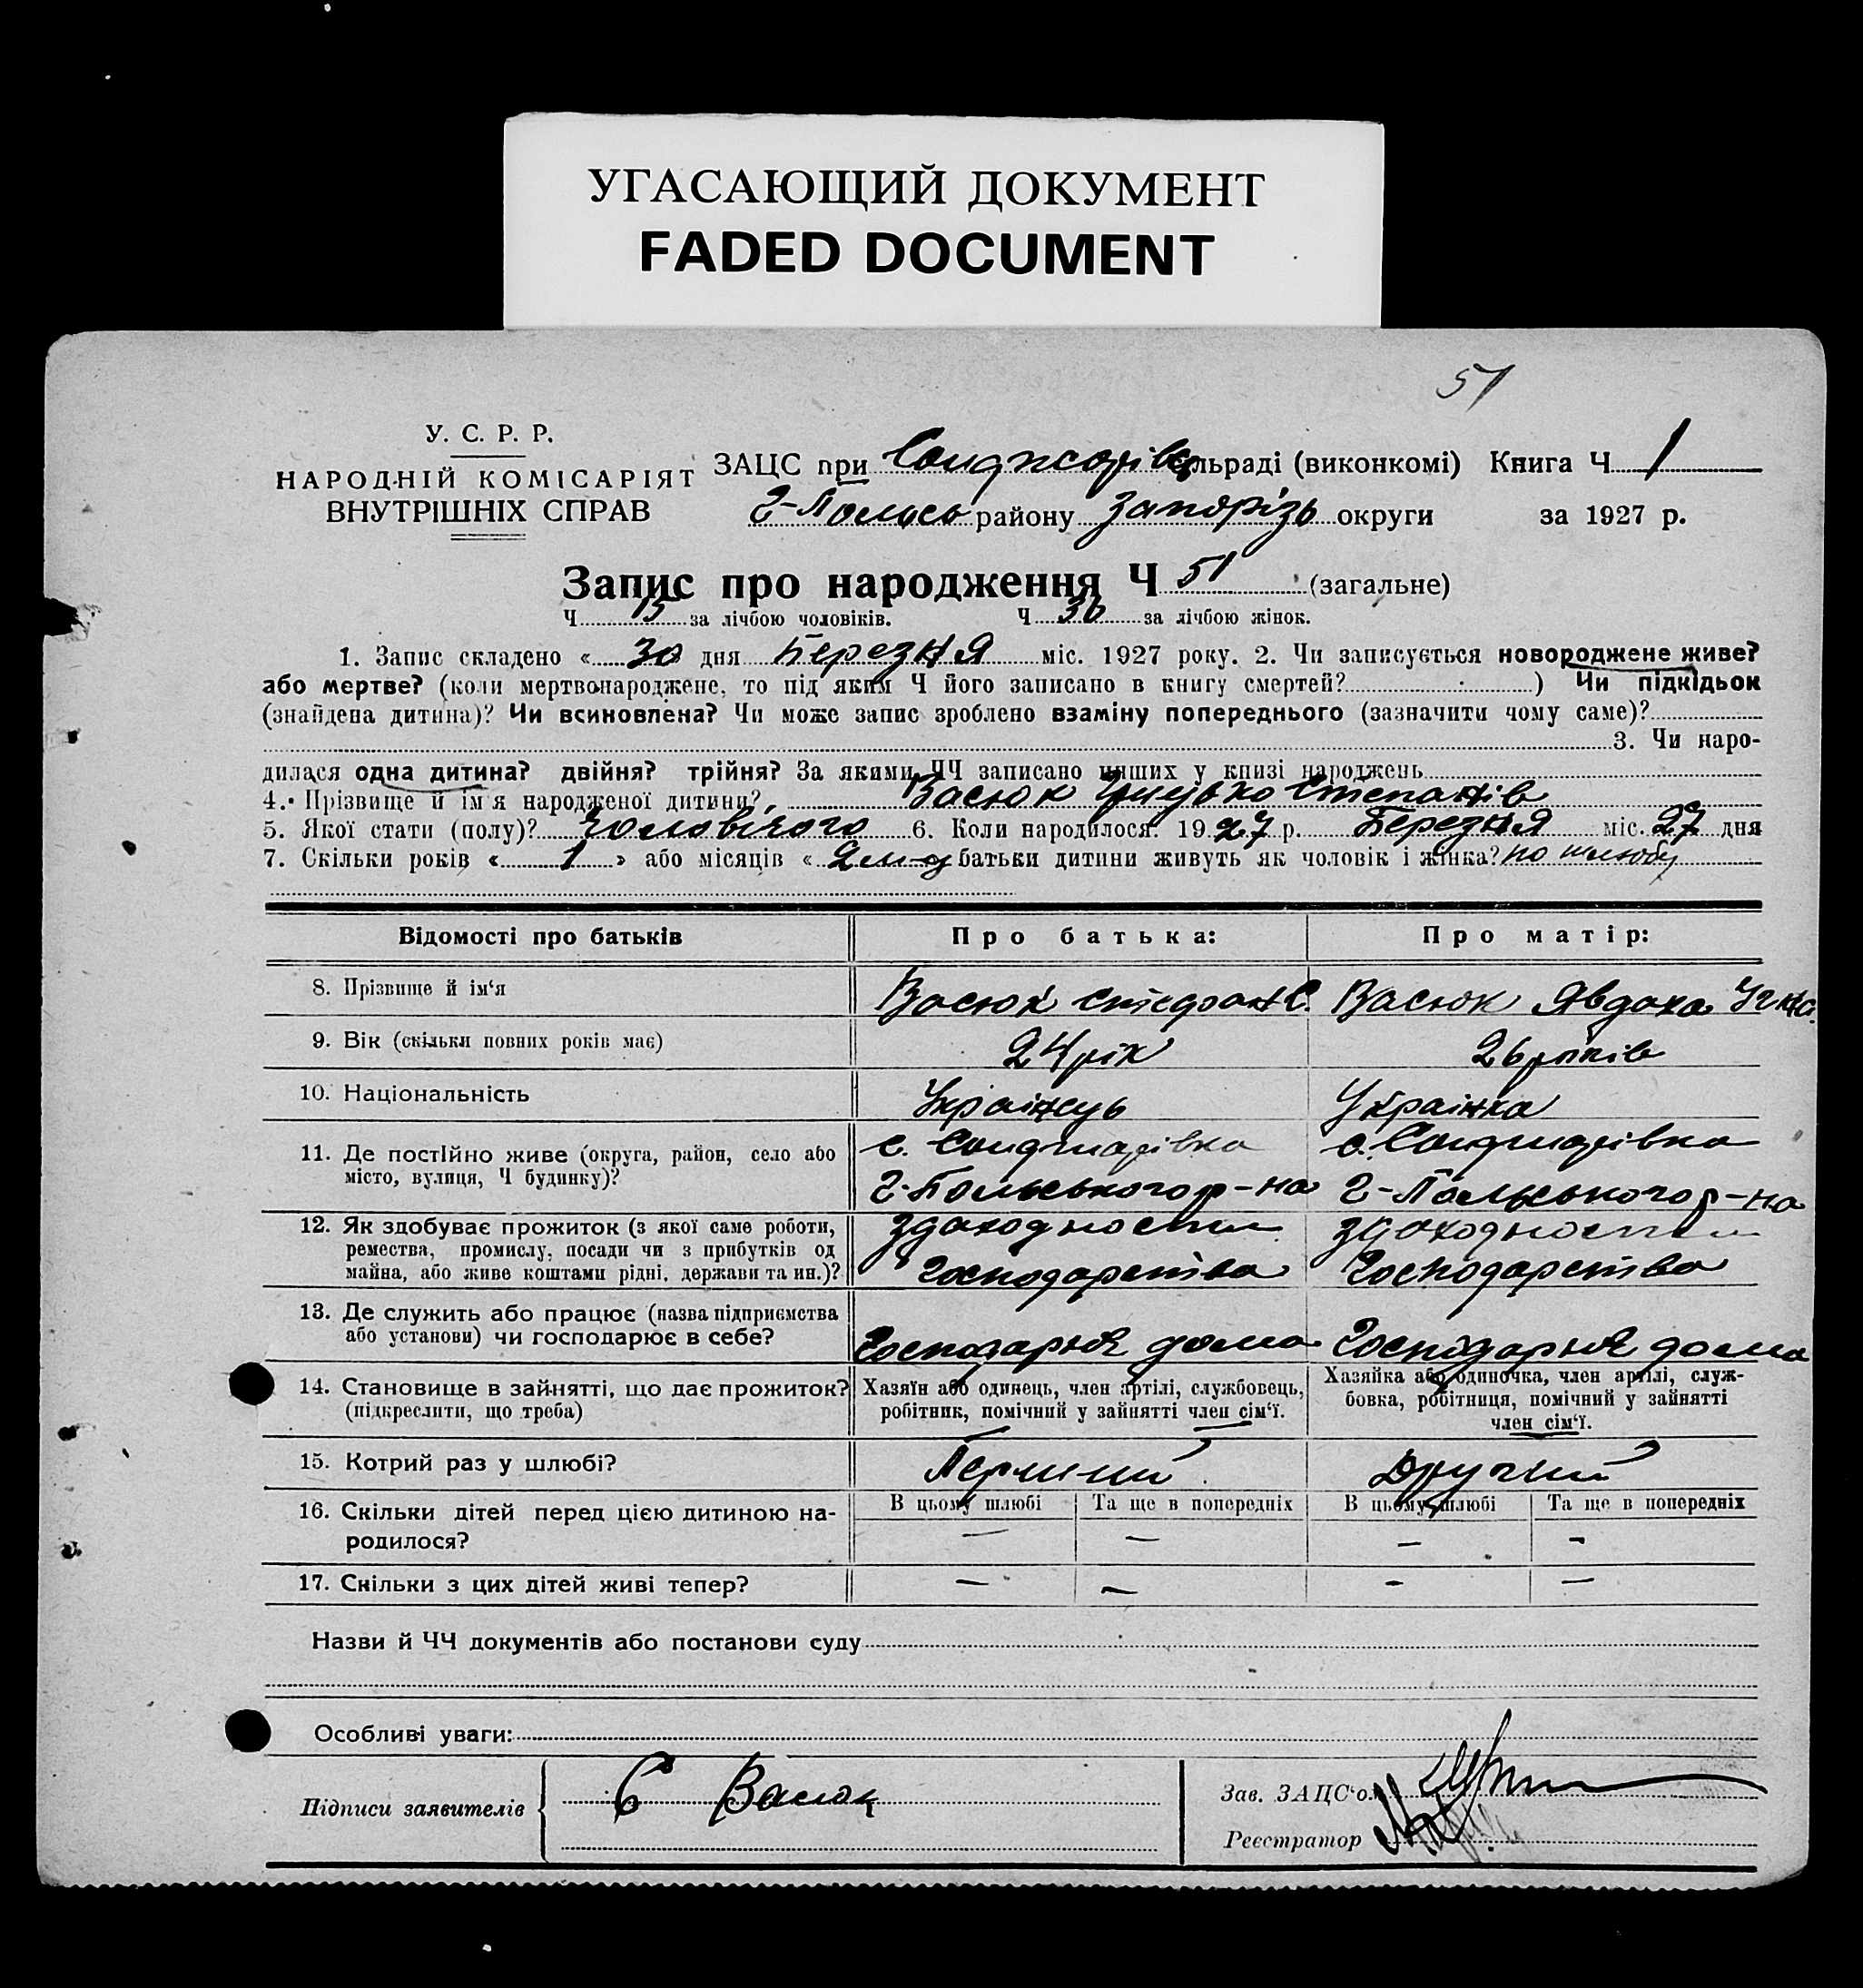 УГАСАЮЩИЙ ДОКУМЕНТ
FADED DOCUMENT
51
У. С. Р. Р.
НАРОДНІЙ КОМІСАРІЯТ
ВНУТРІШНІХ СПРАВ
ЗАЦС при сільраді (виконкомі) Книга Ч 1
Г-Польсь району Запоріз округи за 1927 р.
Запис про народження Ч 51 (загальне)
Ч 15 за лічбою чоловіків. Ч 36 за лічбою жінок.
1. Запис складено « 30 дня Березня міс. 1927 року. 2. Чи записується новороджене живе?
або мертве? (коли мертвонароджене, то під яким Ч його записано в книгу смертей? ) Чи підкідьок
(знайдена дитина)? Чи всиновлена? Чи може запис зроблено взаміну попереднього (зазначити чому саме)?
3. Чи наро-
дилася одна дитина? двійня? трійня? За якими ЧЧ записано инших у книзі народжень
4. Прізвище й ім'я народженої дитини? Васюк Грицько Степанів
5. Якої стати (полу)? Чоловічого 6. Коли народилося? 1927 р. Березня міс. 27 дня
7. Скільки років « 1 » або місяців « 2 батьки дитини живуть як чоловік і жінка? по шлюбу
Відомості про батьків
Про батька:
Про матір:
8. Прізвище й ім'я
Васюк Стефан С.
Васюк Явдоха
9. Вік (скільки повних років має)
24 рік
26 років
10. Національність
Українець
Українка
11. Де постійно живе (округа, район, село або
місто, вулиця, Ч будинку)?
с.
Г-Польського р-на
с.
Г-Польського р-на
12. Як здобуває прожиток (з якої саме роботи,
ремества, промислу, посади чи з прибутків од
майна, або живе коштами рідні, держави та ин.)?
здоходности
Господарства
здоходности
Господарства
13. Де служить або працює (назва підприємства
або установи) чи господарює в себе?
Господарює дома
Господарює дома
14. Становище в зайнятті, що дає прожиток?
(підкреслити, що треба)
Хазяїн або одинець, член артілі, службовець,
робітник, помічний у зайнятті член сім'ї.
Хазяйка або одиночка, член артілі, служ-
бовка, робітниця, помічний у зайнятті
член сім'ї.
15. Котрий раз у шлюбі?
Перший
Другий
16. Скільки дітей перед цією дитиною на-
родилося?
В цьому шлюбі Та ще в попередніх В цьому шлюбі Та ще в попередніх
— — — —
17. Скільки з цих дітей живі тепер?
— — — —
Назви й ЧЧ документів або постанови суду
Особливі уваги:
Підписи заявителів
С Васюк
Зав. ЗАЦС'ом
Реєстратор